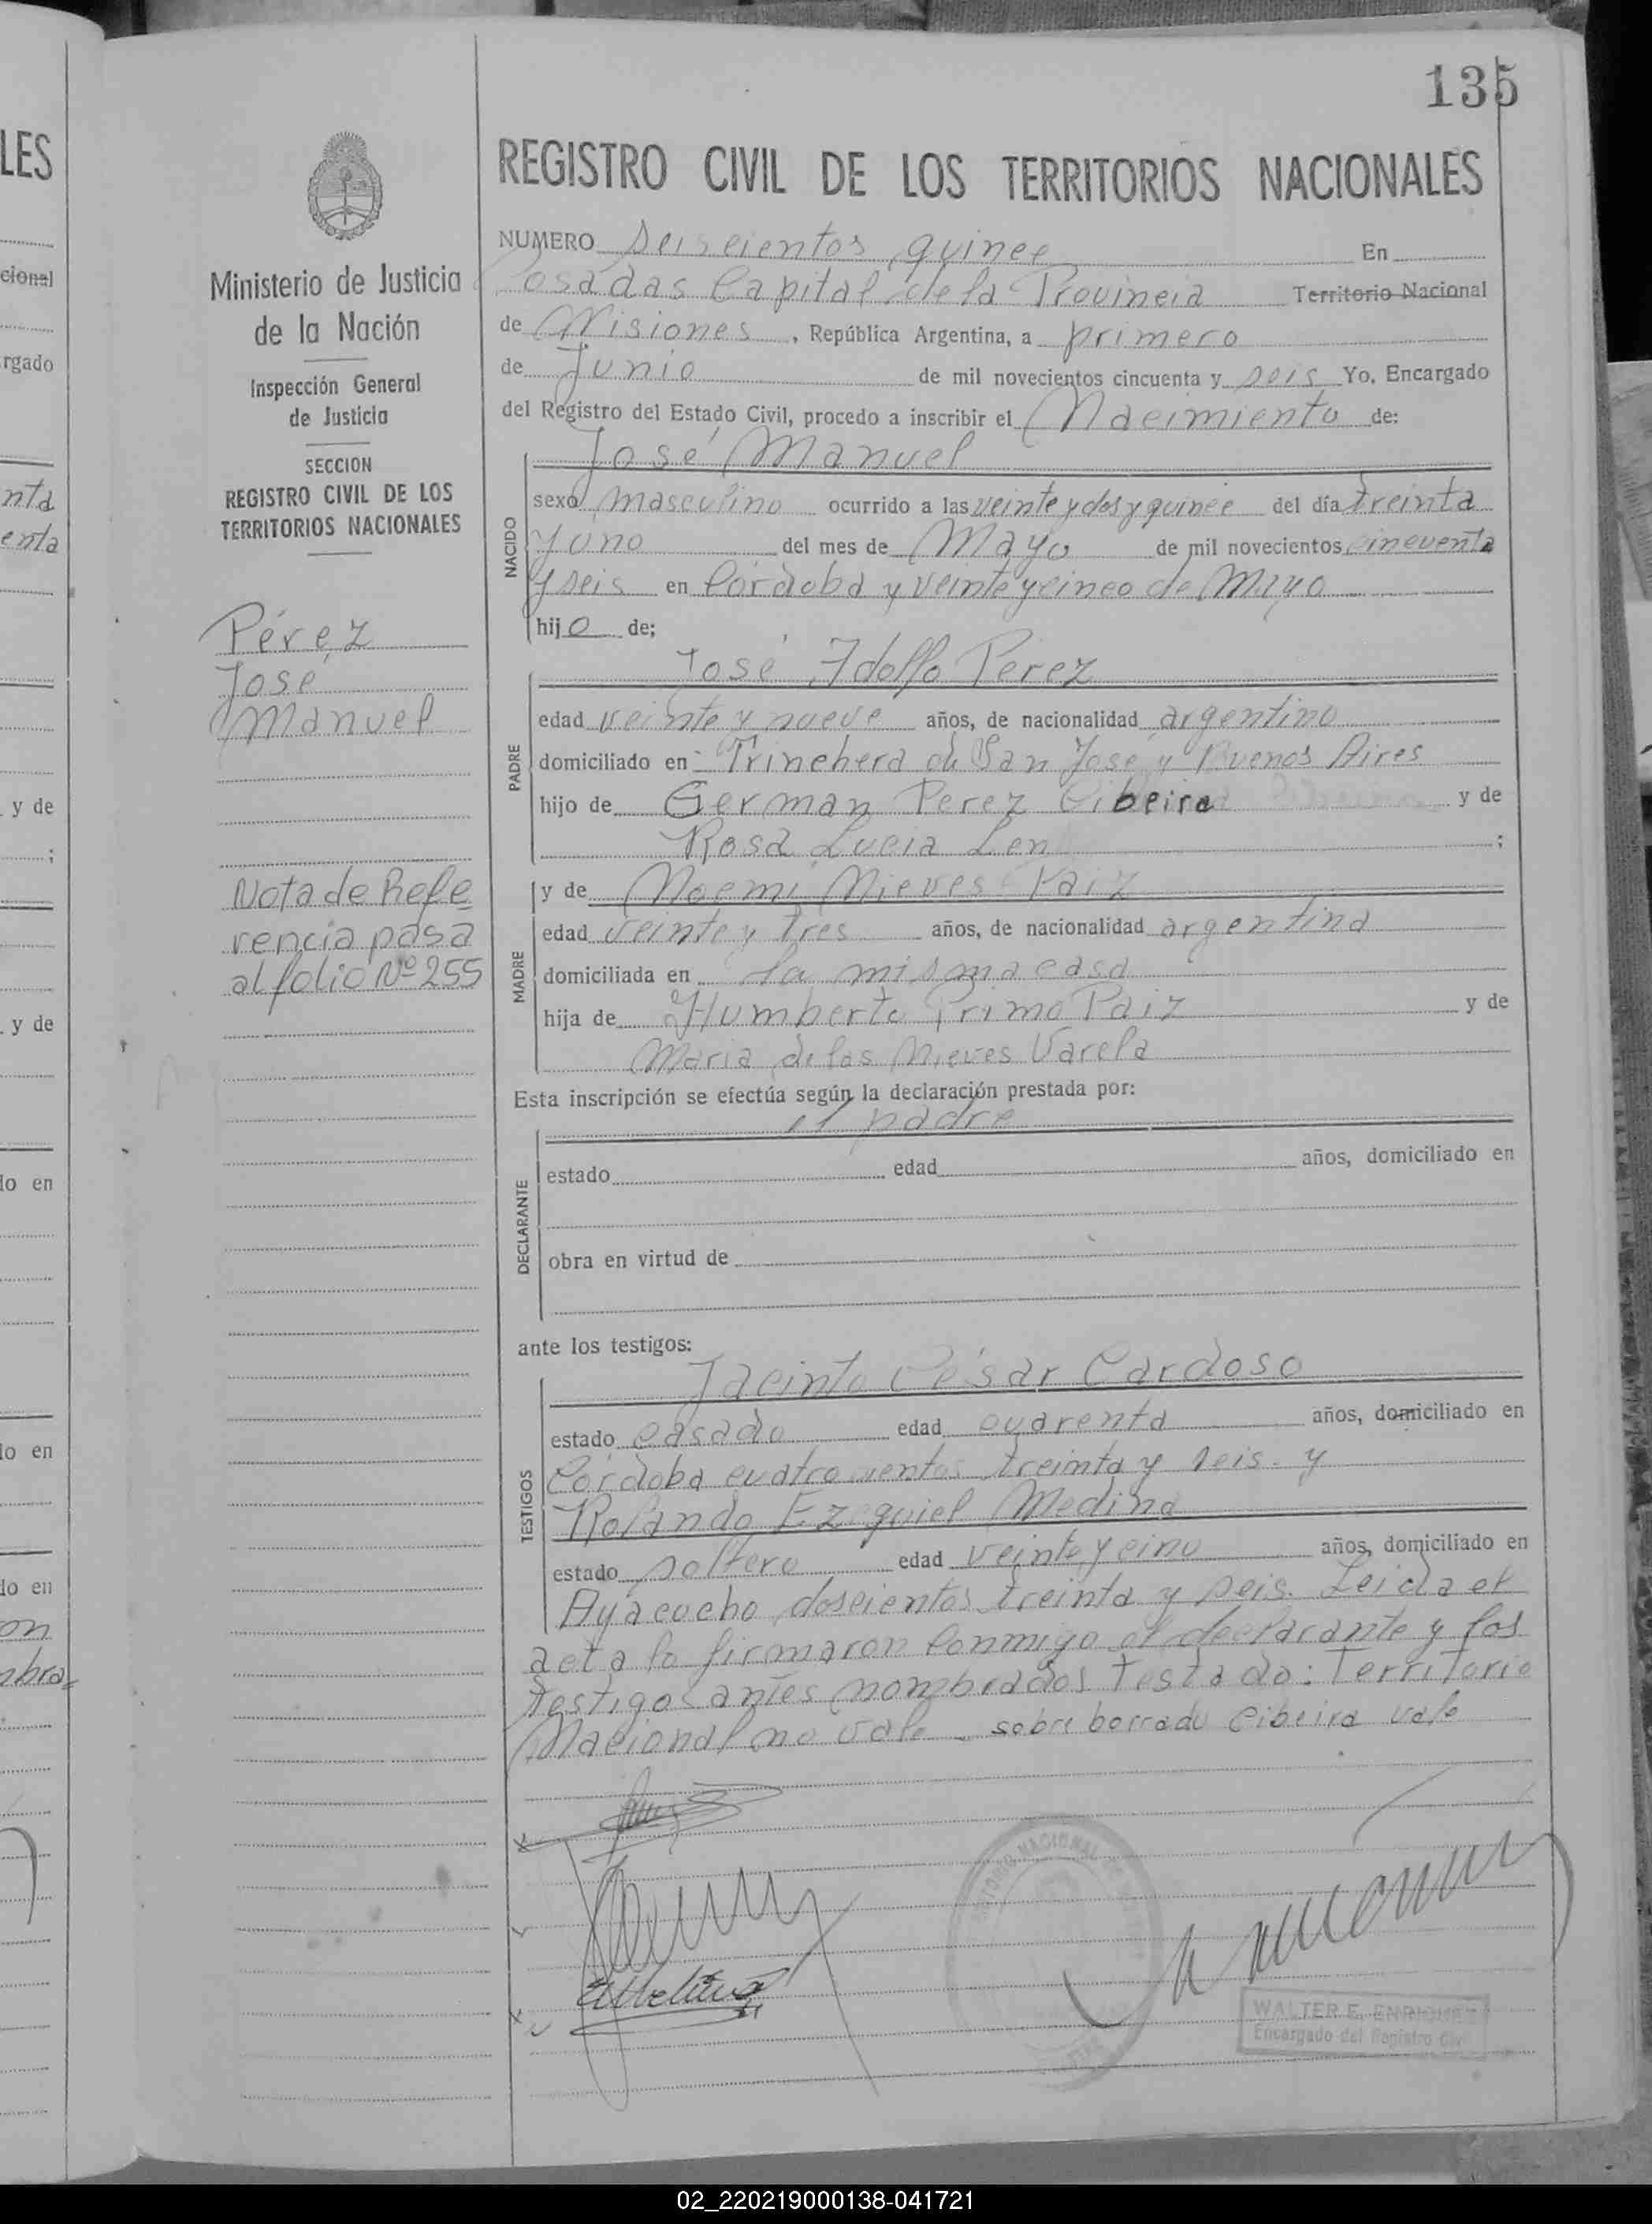 135
LES
cional
rgado
nta
enta
y de
;
y de
do en
do en
do en
on
mbra
Ministerio de Justicia
de la Nación
Inspección General
de Justicia
SECCION
REGISTRO CIVIL DE LOS
TERRITORIOS NACIONALES
Pérez
José
Manuel
Nota de Refe
rencia pasa
al folio Nº 255
REGISTRO CIVIL DE LOS TERRITORIOS NACIONALES
NUMERO seiscientos quince En
Posadas Capital de la Provincia Territorio Nacional
de Misiones, República Argentina, a primero
de Junio de mil novecientos cincuenta y seis Yo, Encargado
del Registro del Estado Civil, procedo a inscribir el Nacimiento de:
José Manuel
NACIDO
sexo masculino ocurrido a las veinte y dos y quince del día treinta
y uno del mes de Mayo de mil novecientos cincuenta
y seis en Córdoba y veinte y cinco de Mayo
hijo de;
José Adolfo Perez
PADRE
edad veinte y nueve años, de nacionalidad argentino
domiciliado en Trinchera de San José y Buenos Aires
hijo de German Perez Cibeira y de
Rosa Lucia Len ;
y de Noemi Nieves Paiz
MADRE
edad veinte y tres años, de nacionalidad argentina
domiciliada en la misma casa
hija de Humberto Primo Paiz y de
Maria de las Nieves Varela
Esta inscripción se efectúa según la declaración prestada por:
el padre
DECLARANTE
estado edad años, domiciliado en
obra en virtud de
ante los testigos:
Jacinto César Cardoso
TESTIGOS
estado casado edad cuarenta años, domiciliado en
Córdoba cuatrocientos treinta y seis. y
Rolando Ezequiel Medina
estado soltero edad veinte y cinco años, domiciliado en
Ayacucho doscientos treinta y seis. Leida el
acta la firmaron conmigo el declarante y los
testigos antes nombrados Testado: Territorio
Nacional no vale - sobre borrado Cibeira vale
WALTER E. ENRIQUEZ
Encargado del Registro Civil
02_220219000138-041721